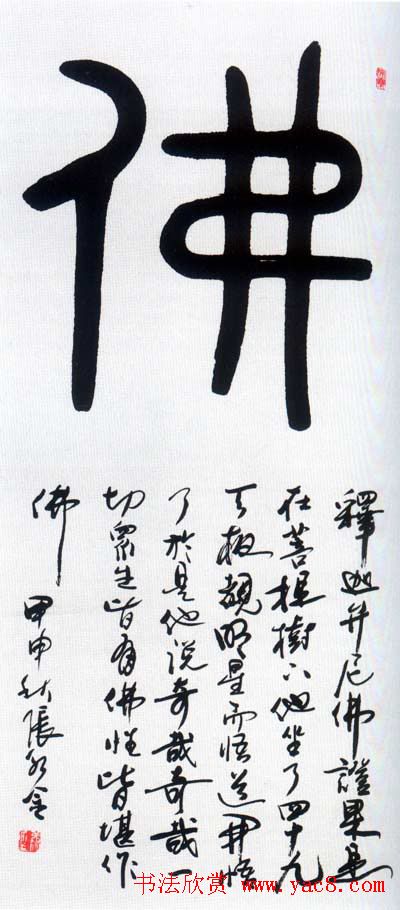 佛
釋迦牟尼佛證果是
在菩提樹下他坐了四十九
天覩明星而悟道開悟
了於是他说奇哉奇哉一
切眾生皆有佛性皆堪作
佛
甲申秋張金
书法欣赏 www.yac8.com